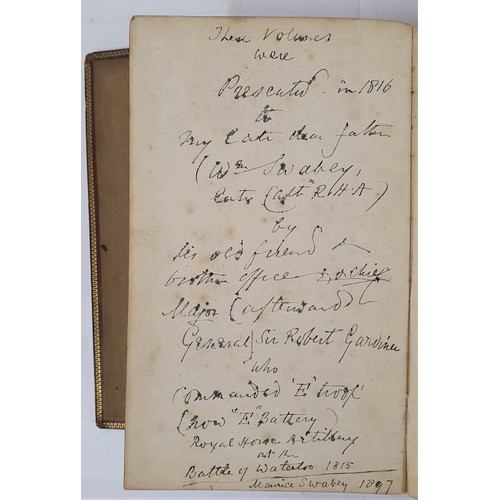 These Volumes
were
Presented in 1816
to
My late dear father
(Wm Swabey,
late Captn R.H.A.)
by
his old friend &
brother officer & chief
Major (afterwards
General) Sir Robert Gardiner
who
Commanded "E" troop
(now "E" Battery)
Royal Horse Artillery
at the
Battle of Waterloo 1815
Maurice Swabey 1897